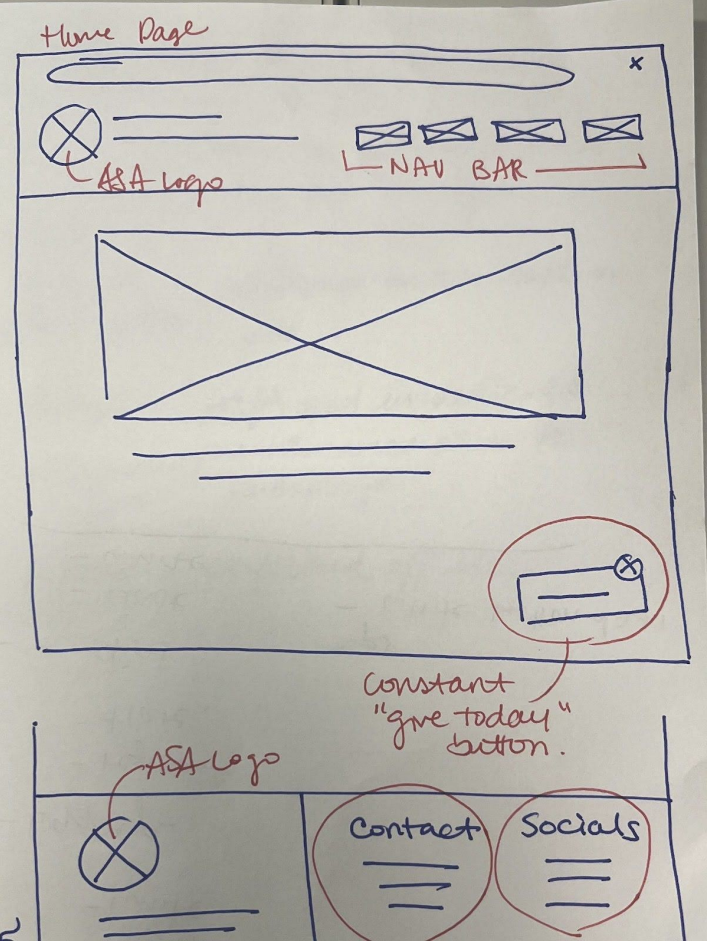 Home Page
x
ASA Logo
NAV BAR
constant
"give today"
button.
ASA Logo
Contact
Socials